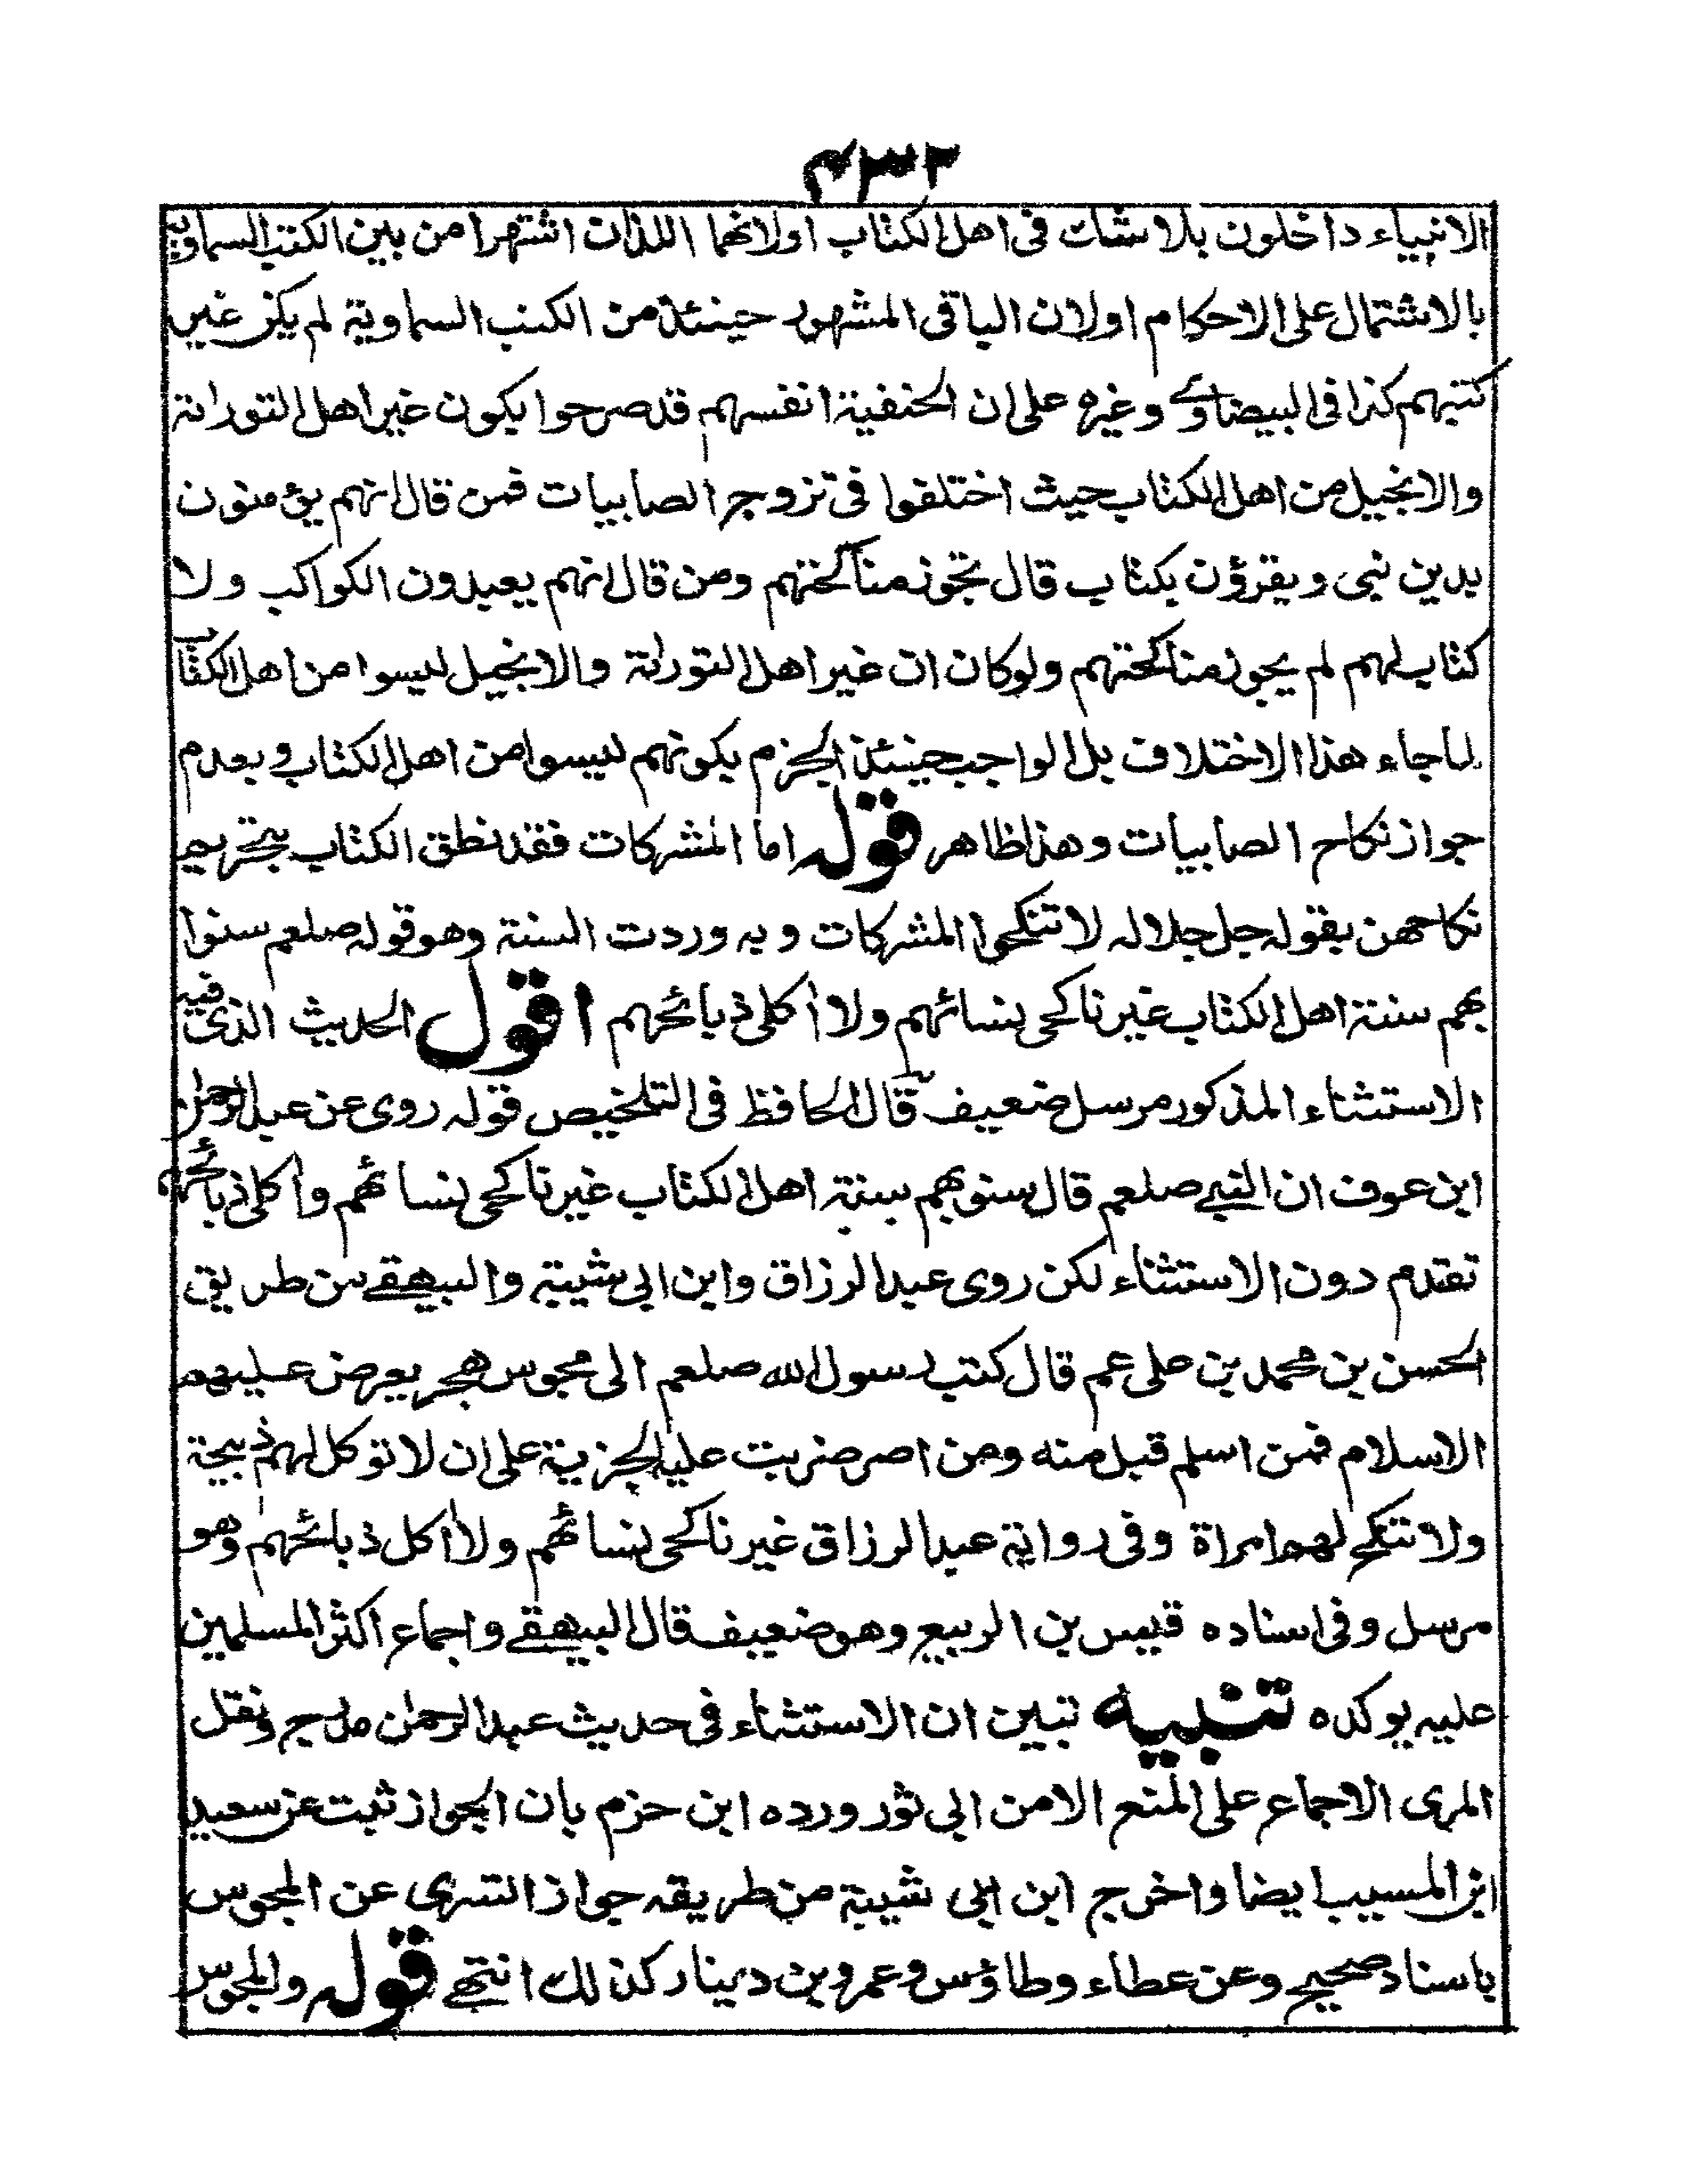 ٢٣٢
الانبياء داخلون بلا شك فى اهل الكتاب او لانهما اللذان اشتهرا من بين الكتب السماوية
بالاشتمال على الاحكام او لان الباقى المشهور حينئذ من الكتب السماوية لم يكن غير
كتبهم كذا فى البيضاوے وغيره على ان الحنفية انفسهم قد صرحوا بكون غير اهل التوراته
والانجيل من اهل الكتاب حيث اختلفوا فى تزوج الصابيات فمن قال انهم يؤمنون
بدين نبى ويقرؤن بكتاب قال تجوز مناكحتهم ومن قال انهم يعبدون الكواكب ولا
كتاب لهم لم يجوز مناكحتهم ولو كان ان غير اهل التوراتة والانجيل ليسوا من اهل الكتاب
لما جاء هذا الاختلاف بل الواجب حينئذ الجزم بكونهم ليسوا من اهل الكتاب و بعدم
جواز نكاح الصابيات وهذا ظاهر قوله اما المشركات فقد نطق الكتاب بتحريم
نكاحهن بقوله جل جلاله لا تنكحوا المشركات وبه وردت السنة وهو قوله صلعم سنوا
بهم سنة اهل الكتاب غير ناكحى نسائهم ولا أكلى ذبائحهم اقول الحديث الذى فيه
الاستثناء المذكور مرسل ضعيف قال الحافظ فى التلخيص قوله روى عن عبد الرحمن
ابن عوف ان النبے صلعم قال سنو بهم سنة اهل الكتاب غير ناكحى نسائهم وأكلى ذبائحهم
تقدم دون الاستثناء لكن روى عبد الرزاق وابن ابى شيبة والبيهقے من طريق
الحسن بن محمد بن على عم قال كتب رسول الله صلعم الى مجوس هجر يعرض عليهم
الاسلام فمن اسلم قبل منه ومن اصر ضربت عليه الجزية على ان لا توكل لهم ذبيحة
ولا تنكح لهم امراة وفى رواية عبد الرزاق غير ناكحى نسائهم ولا أكل ذبائحهم وهو
مرسل وفى اسناده قيس بن الربيع وهو ضعيف قال البيهقے واجماع اكثر المسلمين
عليه يوكده تنبيه تبين ان الاستثناء فى حديث عبد الرحمن مدرج ونقل
المرى الاجماع على المنع الا من ابى ثور ورده ابن حزم بان الجواز ثبت عن سعيد
ابن المسيب ايضا واخرج ابن ابى شيبة من طريقه جواز التسرى عن المجوس
باسناد صحيح وعن عطاء وطاؤس وعمرو بن دينار كذلك انتهے قوله والمجوس